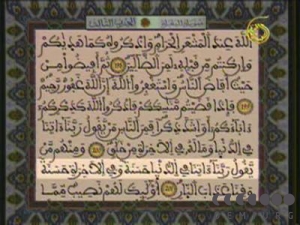 سورة البقرة الحزب الثالث
اللَّهَ عِندَ الْمَشْعَرِ الْحَرَامِ وَاذْكُرُوهُ كَمَا هَدَىٰكُمْ
وَإِن كُنتُم مِّن قَبْلِهِ لَمِنَ الضَّالِّينَ ثُمَّ أَفِيضُوا مِنْ
حَيْثُ أَفَاضَ النَّاسُ وَاسْتَغْفِرُوا اللَّهَ إِنَّ اللَّهَ غَفُورٌ رَّحِيمٌ
فَإِذَا قَضَيْتُم مَّنَاسِكَكُمْ فَاذْكُرُوا اللَّهَ كَذِكْرِكُمْ
ءَابَاءَكُمْ أَوْ أَشَدَّ ذِكْرًا فَمِنَ النَّاسِ مَنْ يَقُولُ رَبَّنَا ءَاتِنَا
فِي الدُّنْيَا وَمَا لَهُ فِي الْآخِرَةِ مِنْ خَلَاقٍ وَمِنْهُم مَّنْ
يَقُولُ رَبَّنَا ءَاتِنَا فِي الدُّنْيَا حَسَنَةً وَفِي الْآخِرَةِ حَسَنَةً
وَقِنَا عَذَابَ النَّارِ أُولَٰئِكَ لَهُمْ نَصِيبٌ مِّمَّا